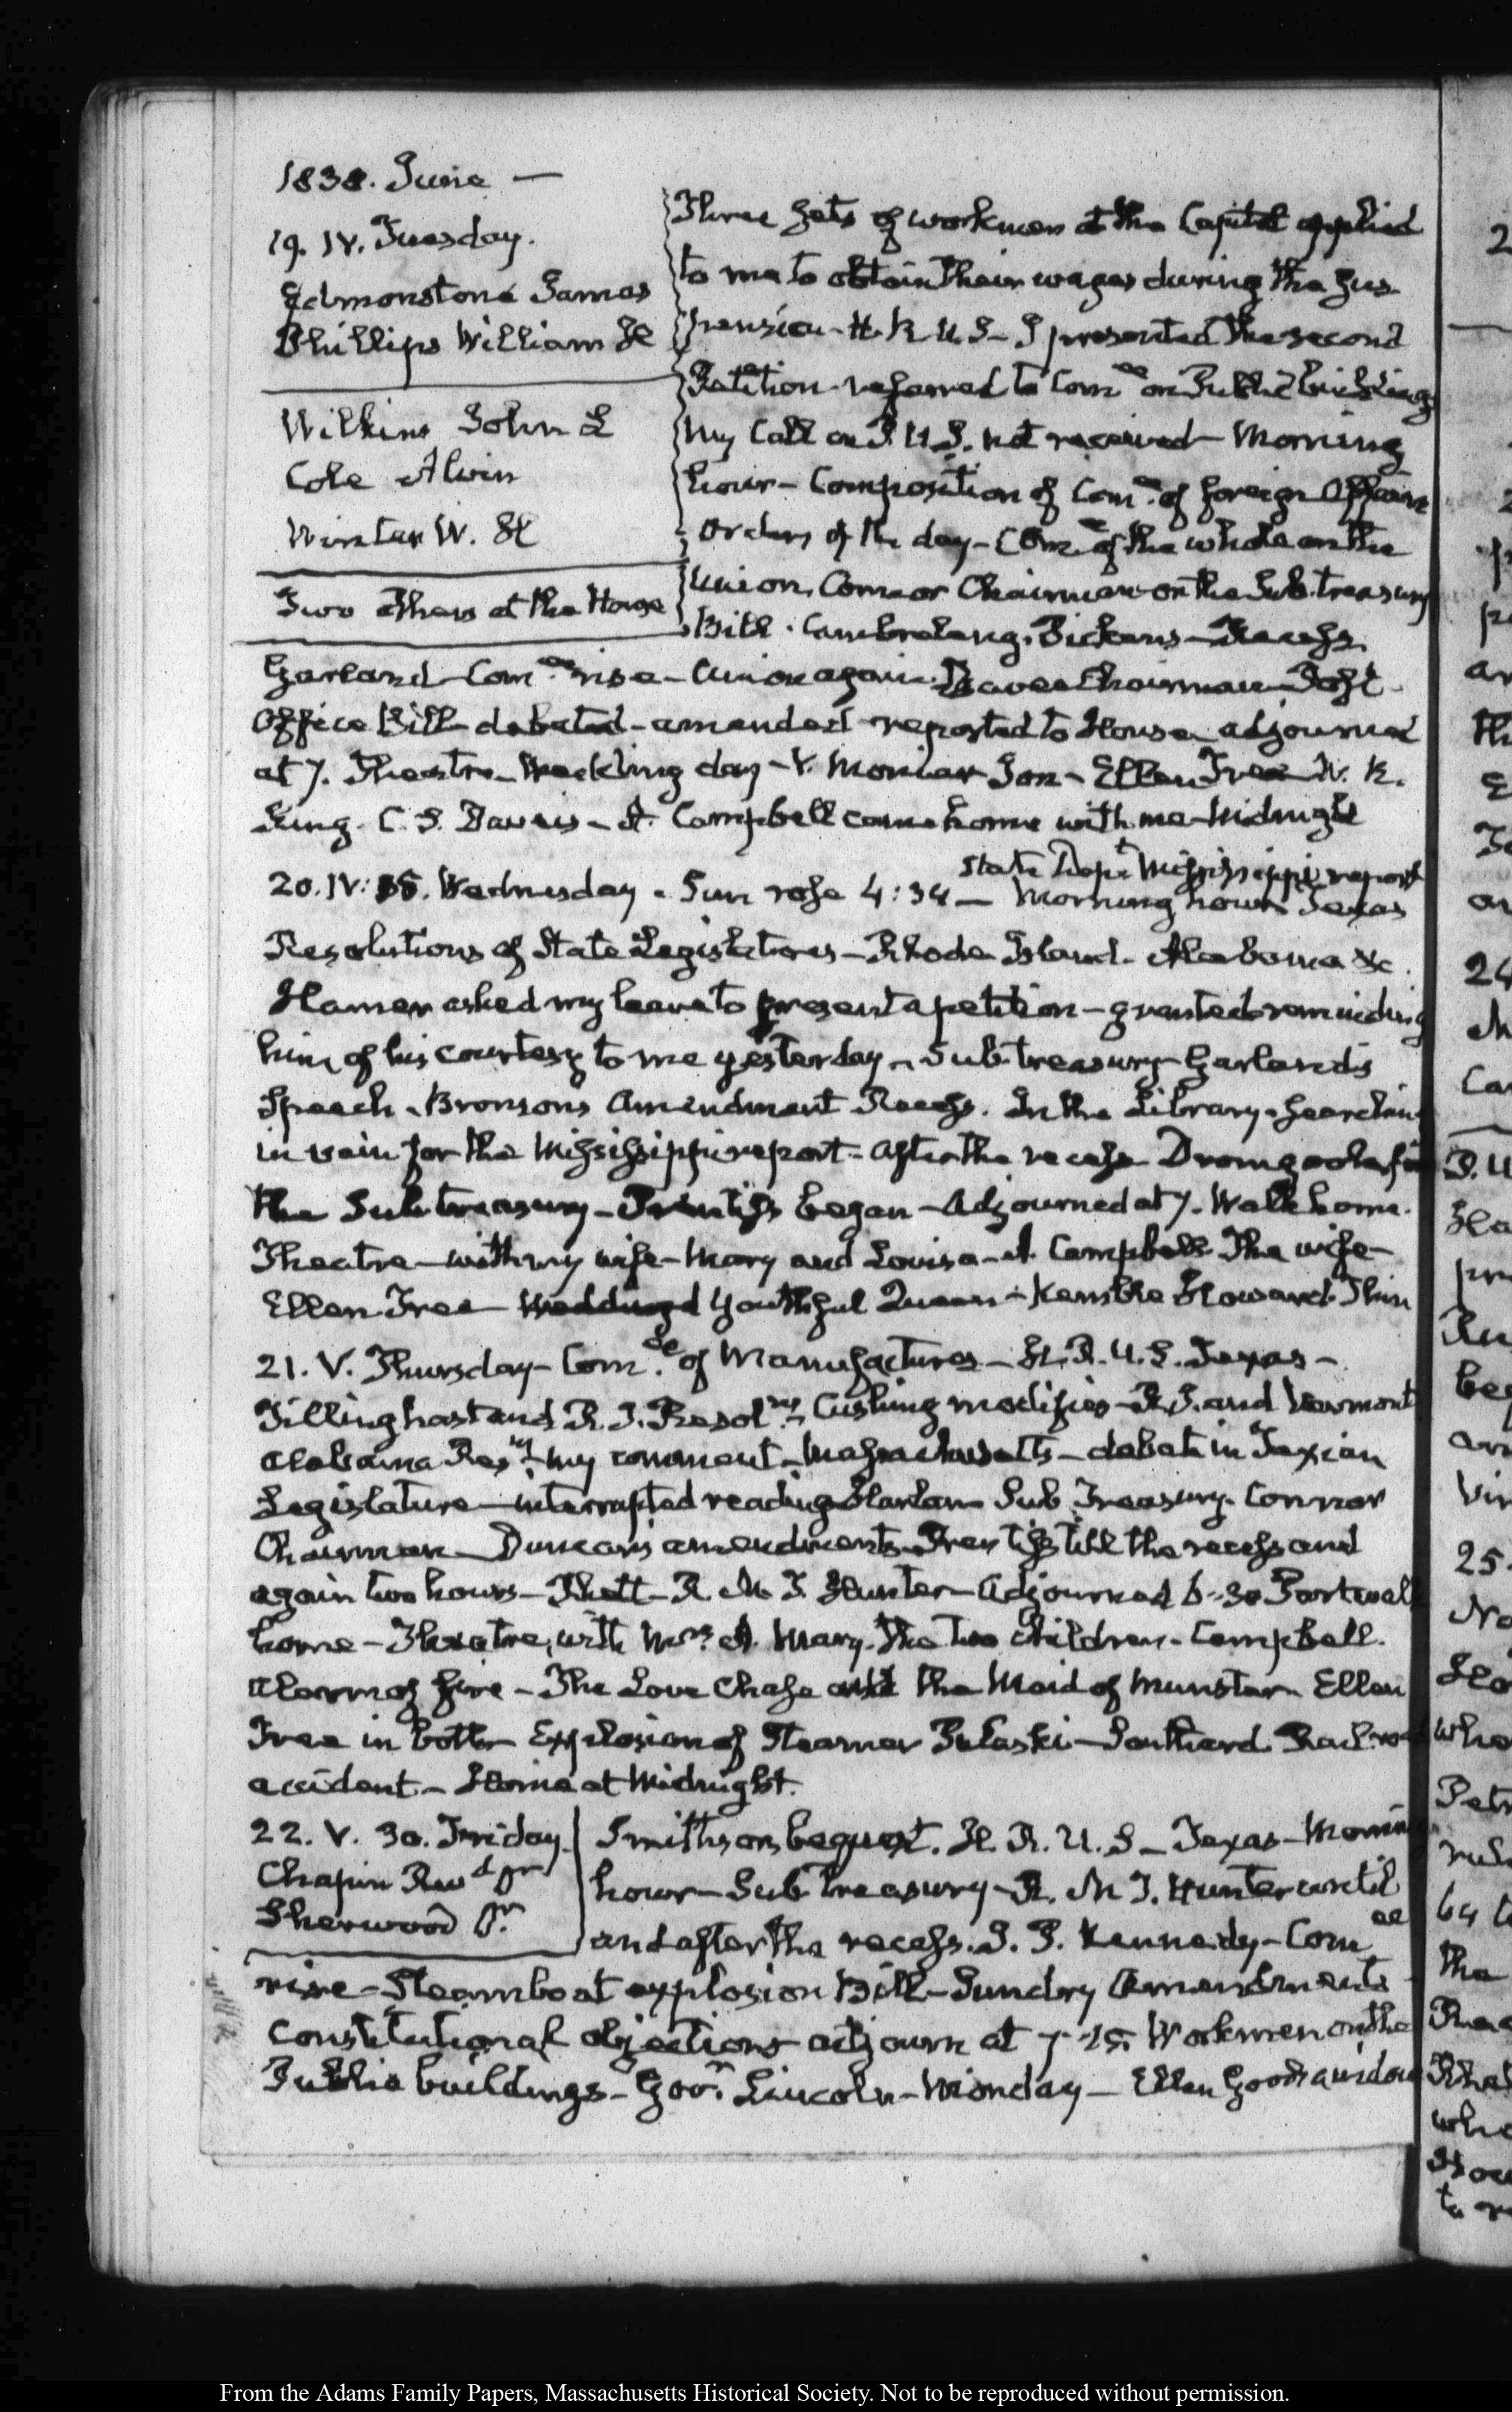 1838. June —
19. IV. Tuesday.
Edmonstone James
Phillips William H
Wilkins John L
Cole Alvin
Winter W. H
Two others at the House
Three sets of workmen at the Capitol applied
to me to obtain their wages during the sus-
pension - H. R. U. S - I presented the second
Petition - referred to Comee on Public buildings
My Call on P. U. S. not received - Morning
hour - Composition of Comee of foreign Affairs
Orders of the day - Comee of the whole on the
Union, Connor Chairman on the Sub treasury
Bill. Cambreleng. Pickens - Recess.
Garland - Comee rise - Union again. Chairman - Post
Office Bill debated - amended - reported to House adjourned
at 7. Theatre - day - V. Ion - Ellen Tree W. R.
King. C. S. Davis - A. Campbell came home with me Midnight
State Dept Mississippi report
20. IV: 35. Wednesday. Sun rose 4:34 - Morning hour Texas
Resolutions of State Legislatures - Rhode Island - Alabama &c.
Hamer asked my leave to present a petition - granted reminding
him of his courtesy to me yesterday - Sub treasury - Garland's
Speech - Bronson's Amendment Recess. In the Library - searching
in vain for the Mississippi report - after the recess Dromgoole for
the Sub treasury - Prentiss began - Adjourned at 7. Walk home.
Theatre - with my wife - Mary and Louisa - A. Campbell. The wife -
Ellen Tree - Youthful Queen - Kemble Howard Thin
21. V. Thursday - Comee of Manufactures - H. R. U. S. Texas -
Tillinghast and R. I. Resolns Cushing modifies - R. I. and Vermont
Alabama Resns my comment - Massachusetts - debate in Texian
Legislature - interrupted reading Harlan Sub Treasury - Connor
Chairman - Duncan's amendments - Prentiss till the recess and
again two hours - Rhett - R M T Hunter - Adjourned 6:30 Part walk
home - Theatre, with Mrs A. Mary. the two children - Campbell.
Alarm of fire - The Love Chase and the Maid of Munster Ellen
Tree in both - Explosion of Steamer Pulaski - Southard Railroad
accident - Home at Midnight.
22. V. 30. Friday
Chapin Revd Dr
Sherwood Dr
Smithson bequest. H. R. U. S - Texas - Morning
hour - Sub treasury - R. M T. Hunter until
and after the recess. J. P. Kennedy - Comee
rise - Steamboat explosion Bill - Sundry Amendments
Constitutional objections adjourn at 7-15. Workmen on the
Public buildings - Govr Lincoln - Monday - Ellen
From the Adams Family Papers, Massachusetts Historical Society. Not to be reproduced without permission.